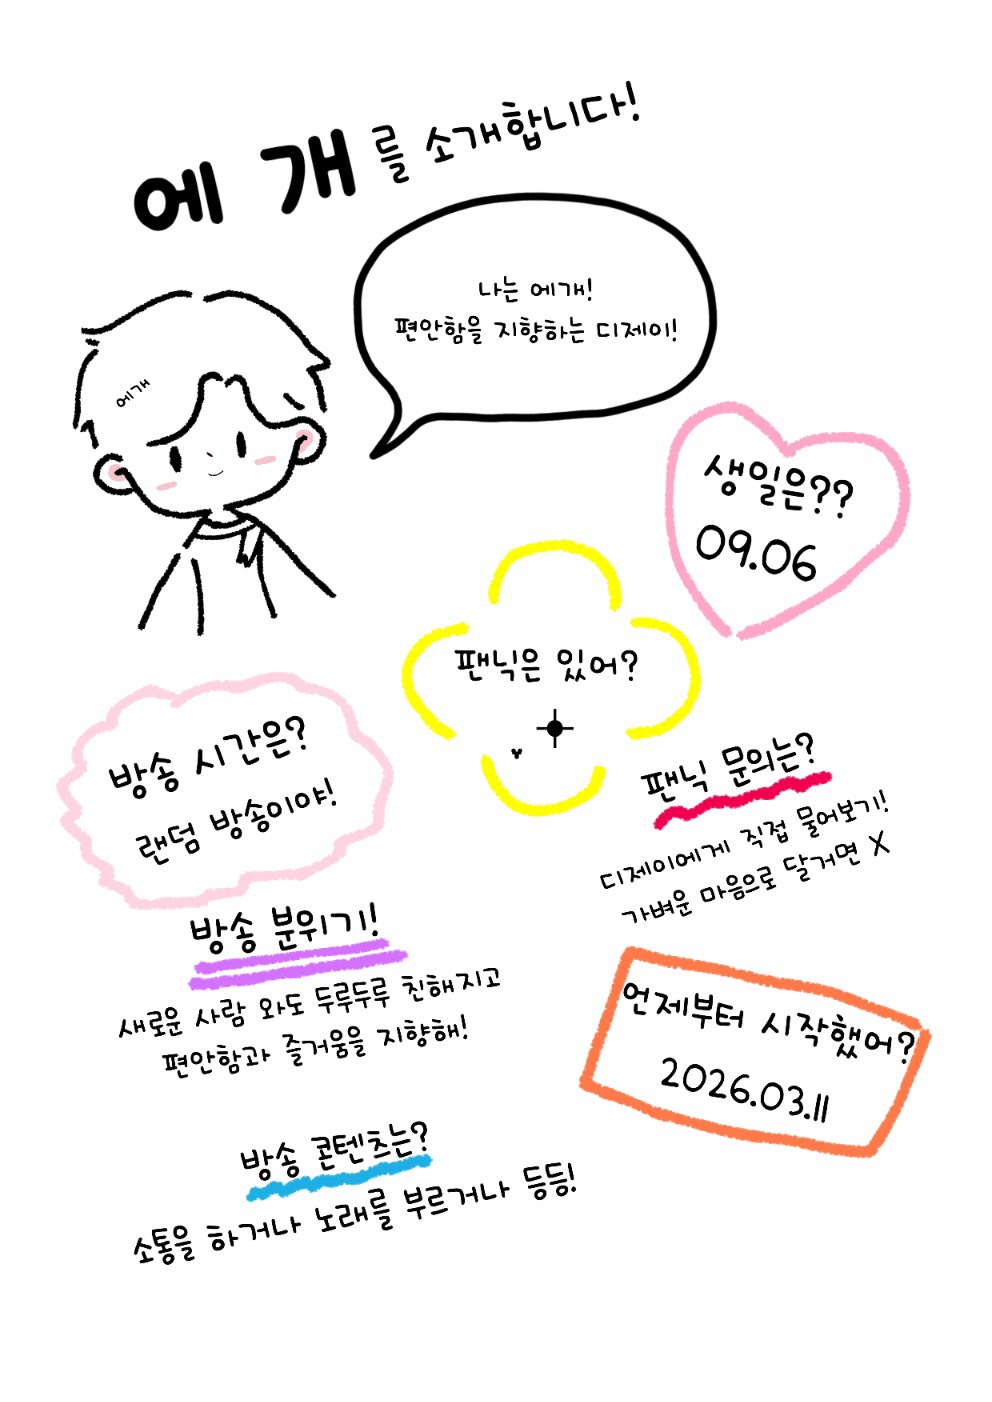 에 개 를 소개합니다!
나는 에개!
편안함을 지향하는 디제이!
에개
생일은??
09.06
팬닉은 있어?
방송 시간은?
랜덤 방송이야!
팬닉 문의는?
디제이에게 직접 물어보기!
가벼운 마음으로 달거면 X
방송 분위기!
새로운 사람 와도 두루두루 친해지고
편안함과 즐거움을 지향해!
언제부터 시작했어?
2026.03.11
방송 콘텐츠는?
소통을 하거나 노래를 부르거나 등등!